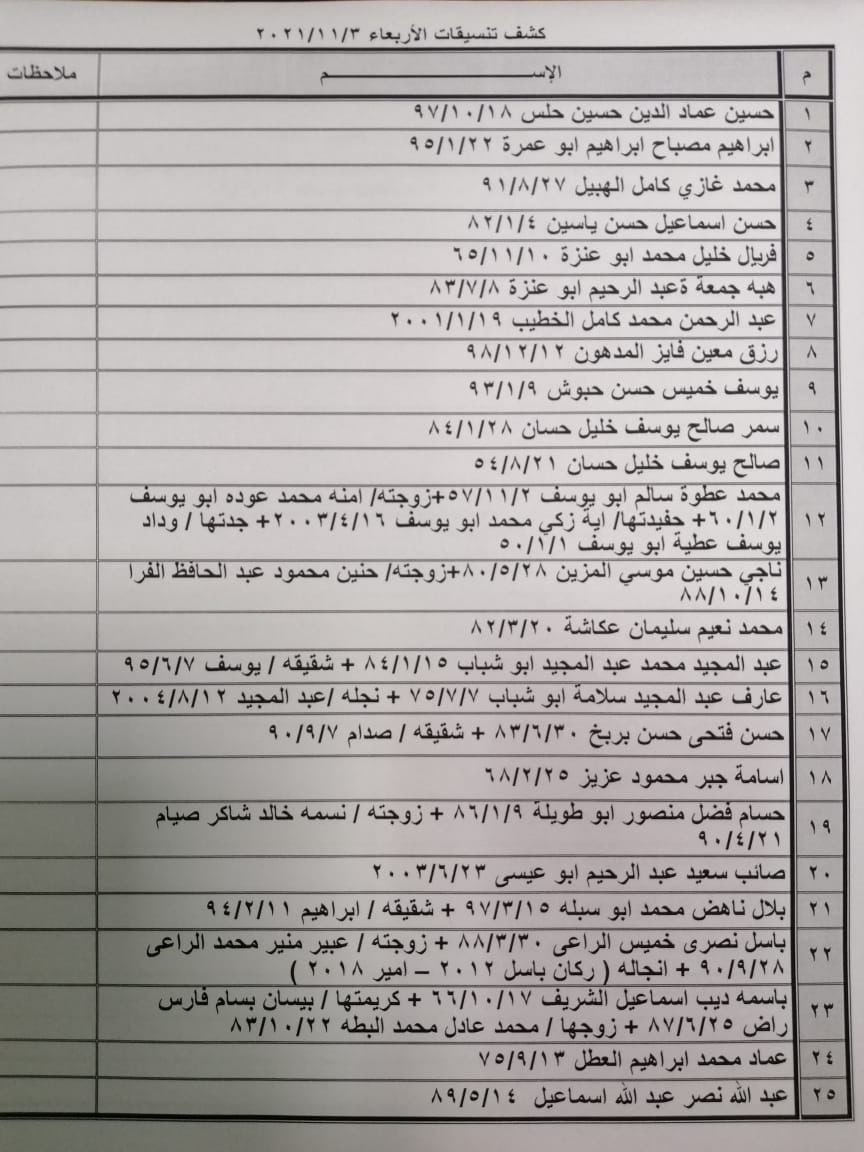 كشف تنسيقات الأربعاء ٢٠٢١/١١/٣
م الإســـــــــــــــــم ملاحظات
١ حسين عماد الدين حسين حلس ٩٧/١٠/١٨
٢ ابراهيم مصباح ابراهيم ابو عمرة ٩٥/١/٢٢
٣ محمد غازي كامل الهبيل ٩١/٨/٢٧
٤ حسن اسماعيل حسن ياسين ٨٢/١/٤
٥ فريال خليل محمد ابو عنزة ٦٥/١١/١٠
٦ هبه جمعة ةعبد الرحيم ابو عنزة ٨٣/٧/٨
٧ عبد الرحمن محمد كامل الخطيب ٢٠٠١/١/١٩
٨ رزق معين فايز المدهون ٩٨/١٢/١٢
٩ يوسف خميس حسن حبوش ٩٣/١/٩
١٠ سمر صالح يوسف خليل حسان ٨٤/١/٢٨
١١ صالح يوسف خليل حسان ٥٤/٨/٢١
١٢ محمد عطوة سالم ابو يوسف ٥٧/١١/٢+زوجته/ امنه محمد عوده ابو يوسف
٦٠/١/٢+ حفيدتها/ اية زكي محمد ابو يوسف ٢٠٠٣/٤/١٦+ جدتها / وداد
يوسف عطية ابو يوسف ٥٠/١/١
١٣ ناجي حسين موسي المزين ٨٠/٥/٢٨+زوجته/ حنين محمود عبد الحافظ الفرا
٨٨/١٠/١٤
١٤ محمد نعيم سليمان عكاشة ٨٢/٣/٢٠
١٥ عبد المجيد محمد عبد المجيد ابو شباب ٨٤/١/١٥ + شقيقه / يوسف ٩٥/٦/٧
١٦ عارف عبد المجيد سلامة ابو شباب ٧٥/٧/٧ + نجله /عبد المجيد ٢٠٠٤/٨/١٢
١٧ حسن فتحى حسن بربخ ٨٣/٦/٣٠ + شقيقه / صدام ٩٠/٩/٧
١٨ اسامة جبر محمود عزيز ٦٨/٢/٢٥
١٩ حسام فضل منصور ابو طويلة ٨٦/١/٩ + زوجته / نسمه خالد شاكر صيام
٩٠/٤/٢١
٢٠ صائب سعيد عبد الرحيم ابو عيسى ٢٠٠٣/٦/٢٣
٢١ بلال ناهض محمد ابو سبله ٩٧/٣/١٥ + شقيقه / ابراهيم ٩٤/٢/١١
٢٢ باسل نصرى خميس الراعى ٨٨/٣/٣٠ + زوجته / عبير منير محمد الراعى
٩٠/٩/٢٨ + انجاله ( ركان باسل ٢٠١٢ – امير ٢٠١٨ )
٢٣ باسمه ديب اسماعيل الشريف ٦٦/١٠/١٧ + كريمتها / بيسان بسام فارس
راض ٨٧/٦/٢٥ + زوجها / محمد عادل محمد البطه ٨٣/١٠/٢٢
٢٤ عماد محمد ابراهيم العطل ٧٥/٩/١٣
٢٥ عبد الله نصر عبد الله اسماعيل ٨٩/٥/١٤